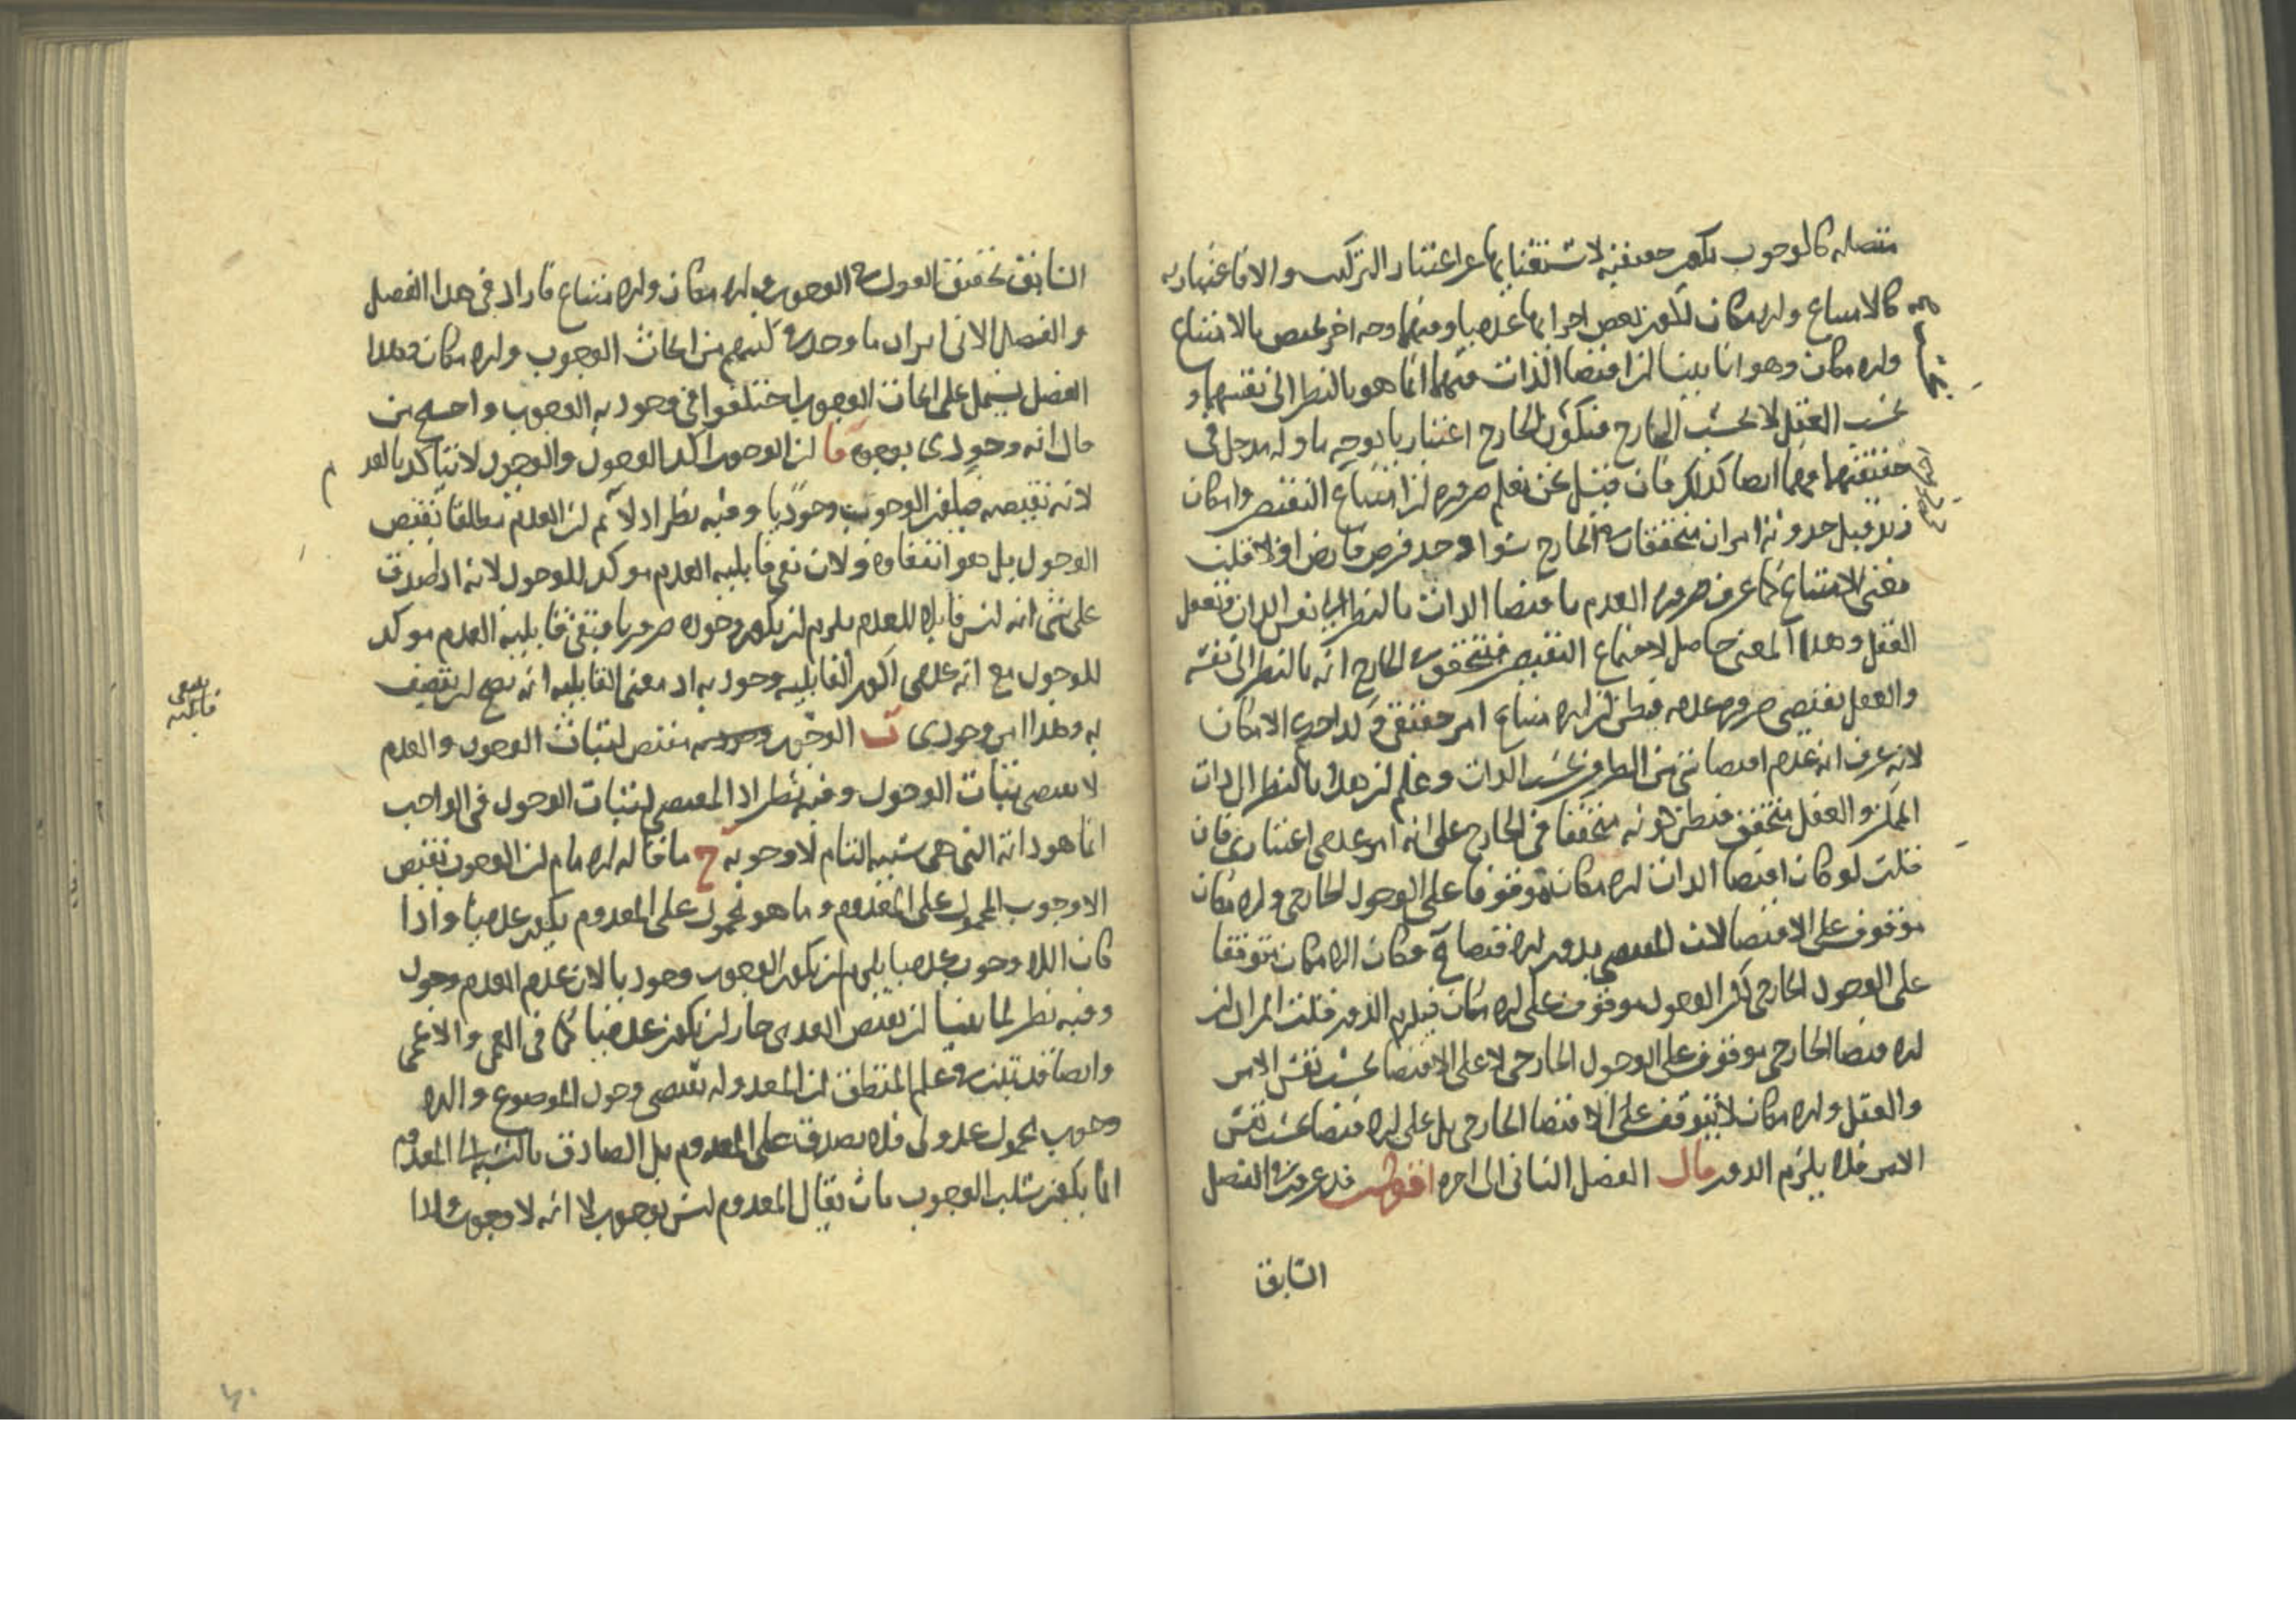 متصله كالوجوب يكون حقيقية لاستغنائها عن اعتبار التركيب والا فاعتبارية
كالامتناع والامكان لكون بعض اجزائها عدميا ومنها وجه اخر يختص بالامتناع
والامكان وهو انا بينا ان اقتضا الذات فيهما انما هو بالنظر الى نفسها و
بحسب العقل لا بحسب الخارج فيكون الخارج اعتباريا بوجه ما وله مدخل في
حقيقتهما فهما ايضا كذلك فان قيل نحن نعلم ضرورة ان امتناع النقيضين وامكان
زيد قبل حدوثه امران متحققان في الخارج سوا وجد فرض فارض اولا قلت
معنى الامتناع كما عرف ضرورة العدم باقتضا الذات بالنظر الى نفس الذات وتعقل
العقل وهذا المعنى حاصل لاجتماع النقيضين فتحقق في الخارج انه بالنظر الى نفسه
والعقل يقتضي ضرورة عدمه فيظن ان الامتناع امر حقيقي وكذا حديث الامكان
لانه عرف انه عدم اقتضا شي من الطرفين بحسب الذات وعلم ان هذا بالنظر الى ذات
الممكن والعقل متحقق فيظن كونه متحققا في الخارج على انه امر عدمي اعتباري فان
قلت لو كان اقتضا الذات الامكان موقوفا على الوجود الخارجي والامكان
موقوف على الاقتضا لان المقتضي بدون الاقتضا مح فكان الامكان متوقفا
على الوجود الخارجي لكن الوجود موقوف على الامكان فيلزم الدور قلت المراد ان
الاقتضا الخارجي موقوف على الوجود الخارجي لا على الاقتضا بحسب نفس الامر
والعقل والامكان لا يتوقف على الاقتضا الخارجي بل على الاقتضا بحسب نفس
الامر فلا يلزم الدور قال الفصل الثاني الى اخره اقول قد عرفت في الفصل
السابق
السابق تحقيق القول في الوجوب والامكان والامتناع فاراد في هذا الفصل
والفصل الاتي ايراد ما وجد في كتبهم من ابحاث الوجوب والامكان وهذا
الفصل يشتمل على ابحاث الوجوب اختلفوا في وجودية الوجوب واحتج من
قال انه وجودي بوجوه ا ان الوجوب اكد الوجود والوجود لا يتاكد بالعدم
لانه نقيضه فيكون الوجوب وجوديا وفيه نظر اذ لا نم ان العدم مطلقا نقيض
الوجود بل هو انتفاوه ولان نفي قابلية العدم موكد للوجود لانه اذا صدق
على شي انه ليس قابلا للعدم يلزم ان يكون وجوده ضروريا فنفي قابلية العدم موكد
للوجود مع انه عدمي لكون القابلية وجودية اذ معنى القابلية انه يصح ان يتصف
به وهذا امر وجودي ب الوجوب مقتض لثبات الوجود والعدم
لا يقتضي ثبات الوجود وفيه نظر اذ المقتضي لثبات الوجود في الواجب
انما هو ذاته التي هي سببه التام لا وجوبه ج ما قاله الامام ان الوجوب نقيض
اللاوجوب المحمول على المعدوم وما هو محمول على المعدوم يكون عدميا واذا
كان اللاوجوب عدميا يلزم ان يكون الوجوب وجوديا لان عدم العدم وجود
وفيه نظر لما بينا ان نقيض العدمي جاز ان يكون عدميا كما في العمى والاعمى
وايضا قد تبين في علم المنطق ان المعدولة تقتضي وجود الموضوع واللا
وجوب محمول عدولي فلا يصدق على المعدوم بل الصادق بالنسبة الى المعدوم
انما يكون سلب الوجوب بان يقال المعدوم ليس بوجوب لا انه لا وجوب واذا